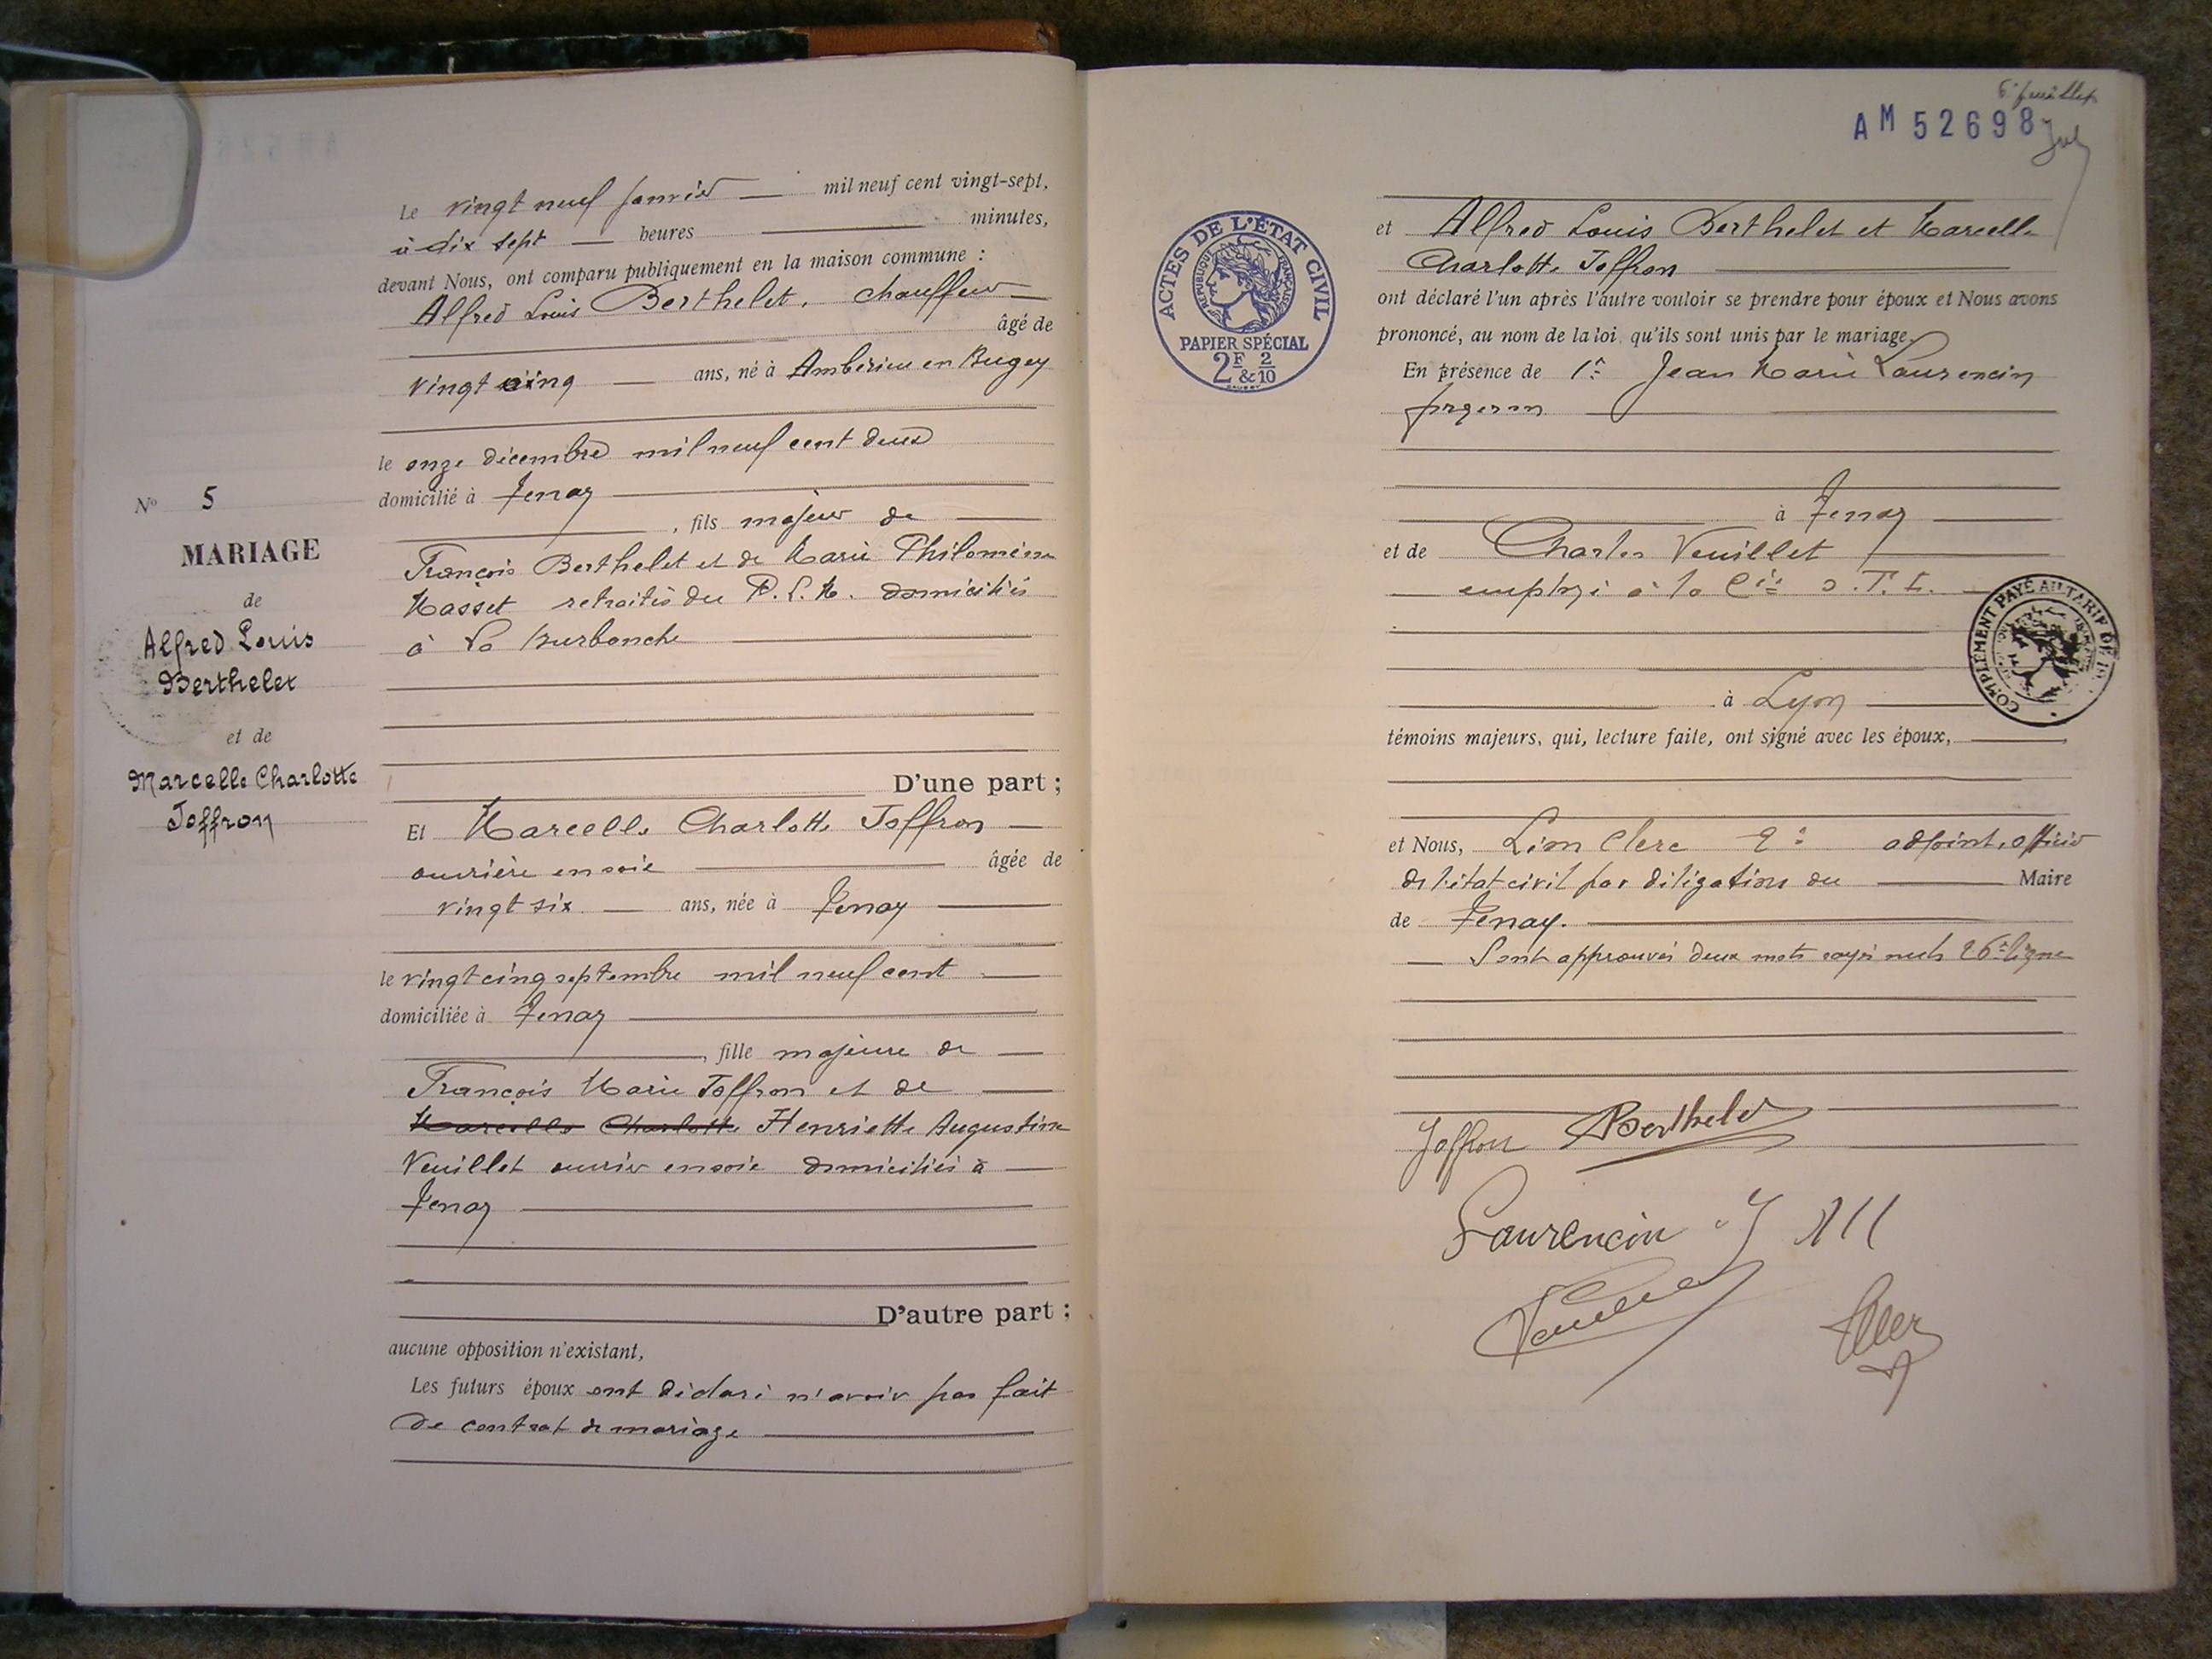 Le vingt neuf janvier mil neuf cent vingt-sept,
à dix sept heures minutes,
devant Nous, ont comparu publiquement en la maison commune :
Alfred Louis Berthelet, chauffeur
âgé de
vingt cinq ans, né à Ambérieu en Bugey
le onze décembre mil neuf cent deux
domicilié à Tenay
, fils majeur de
François Berthelet et de Marie Philomène
Masset retraités du P. L. M. domiciliés
à La Burbanche
D'une part ;
Et Marcelle Charlotte Joffron
ouvrière en soie âgée de
vingt six ans, née à Tenay
le vingt cinq septembre mil neuf cent
domiciliée à Tenay
, fille majeure de
François Marie Joffron et de
Marcelle Charlotte Henriette Augustine
Veuillet ouvrier en soie domiciliés à
Tenay
D'autre part ;
aucune opposition n'existant,
Les futurs époux ont déclaré n'avoir pas fait
de contrat de mariage
No 5
MARIAGE
de
Alfred Louis
Berthelet
et de
Marcelle Charlotte
Joffron
6e feuillet
AM 52698
ACTES DE L'ÉTAT CIVIL
RÉPUBLIQUE FRANÇAISE
PAPIER SPÉCIAL
2F & 2/10
et Alfred Louis Berthelet et Marcelle
Charlotte Joffron
ont déclaré l'un après l'autre vouloir se prendre pour époux et Nous avons
prononcé, au nom de la loi, qu'ils sont unis par le mariage.
En présence de 1º Jean Marie Laurencin
forgeron
à Tenay
et de Charles Veuillet
employé à la Cie O. T. L.
COMPLÉMENT PAYÉ AU TARIF DE
à Lyon
témoins majeurs, qui, lecture faite, ont signé avec les époux,
et Nous, Léon Clerc 2e adjoint, officier
de l'état civil par déligation du Maire
de Tenay.
Sont approuvés deux mots rayés nuls 26e ligne
Joffron Berthelet
Laurencin J M
Veuillet
Clerc